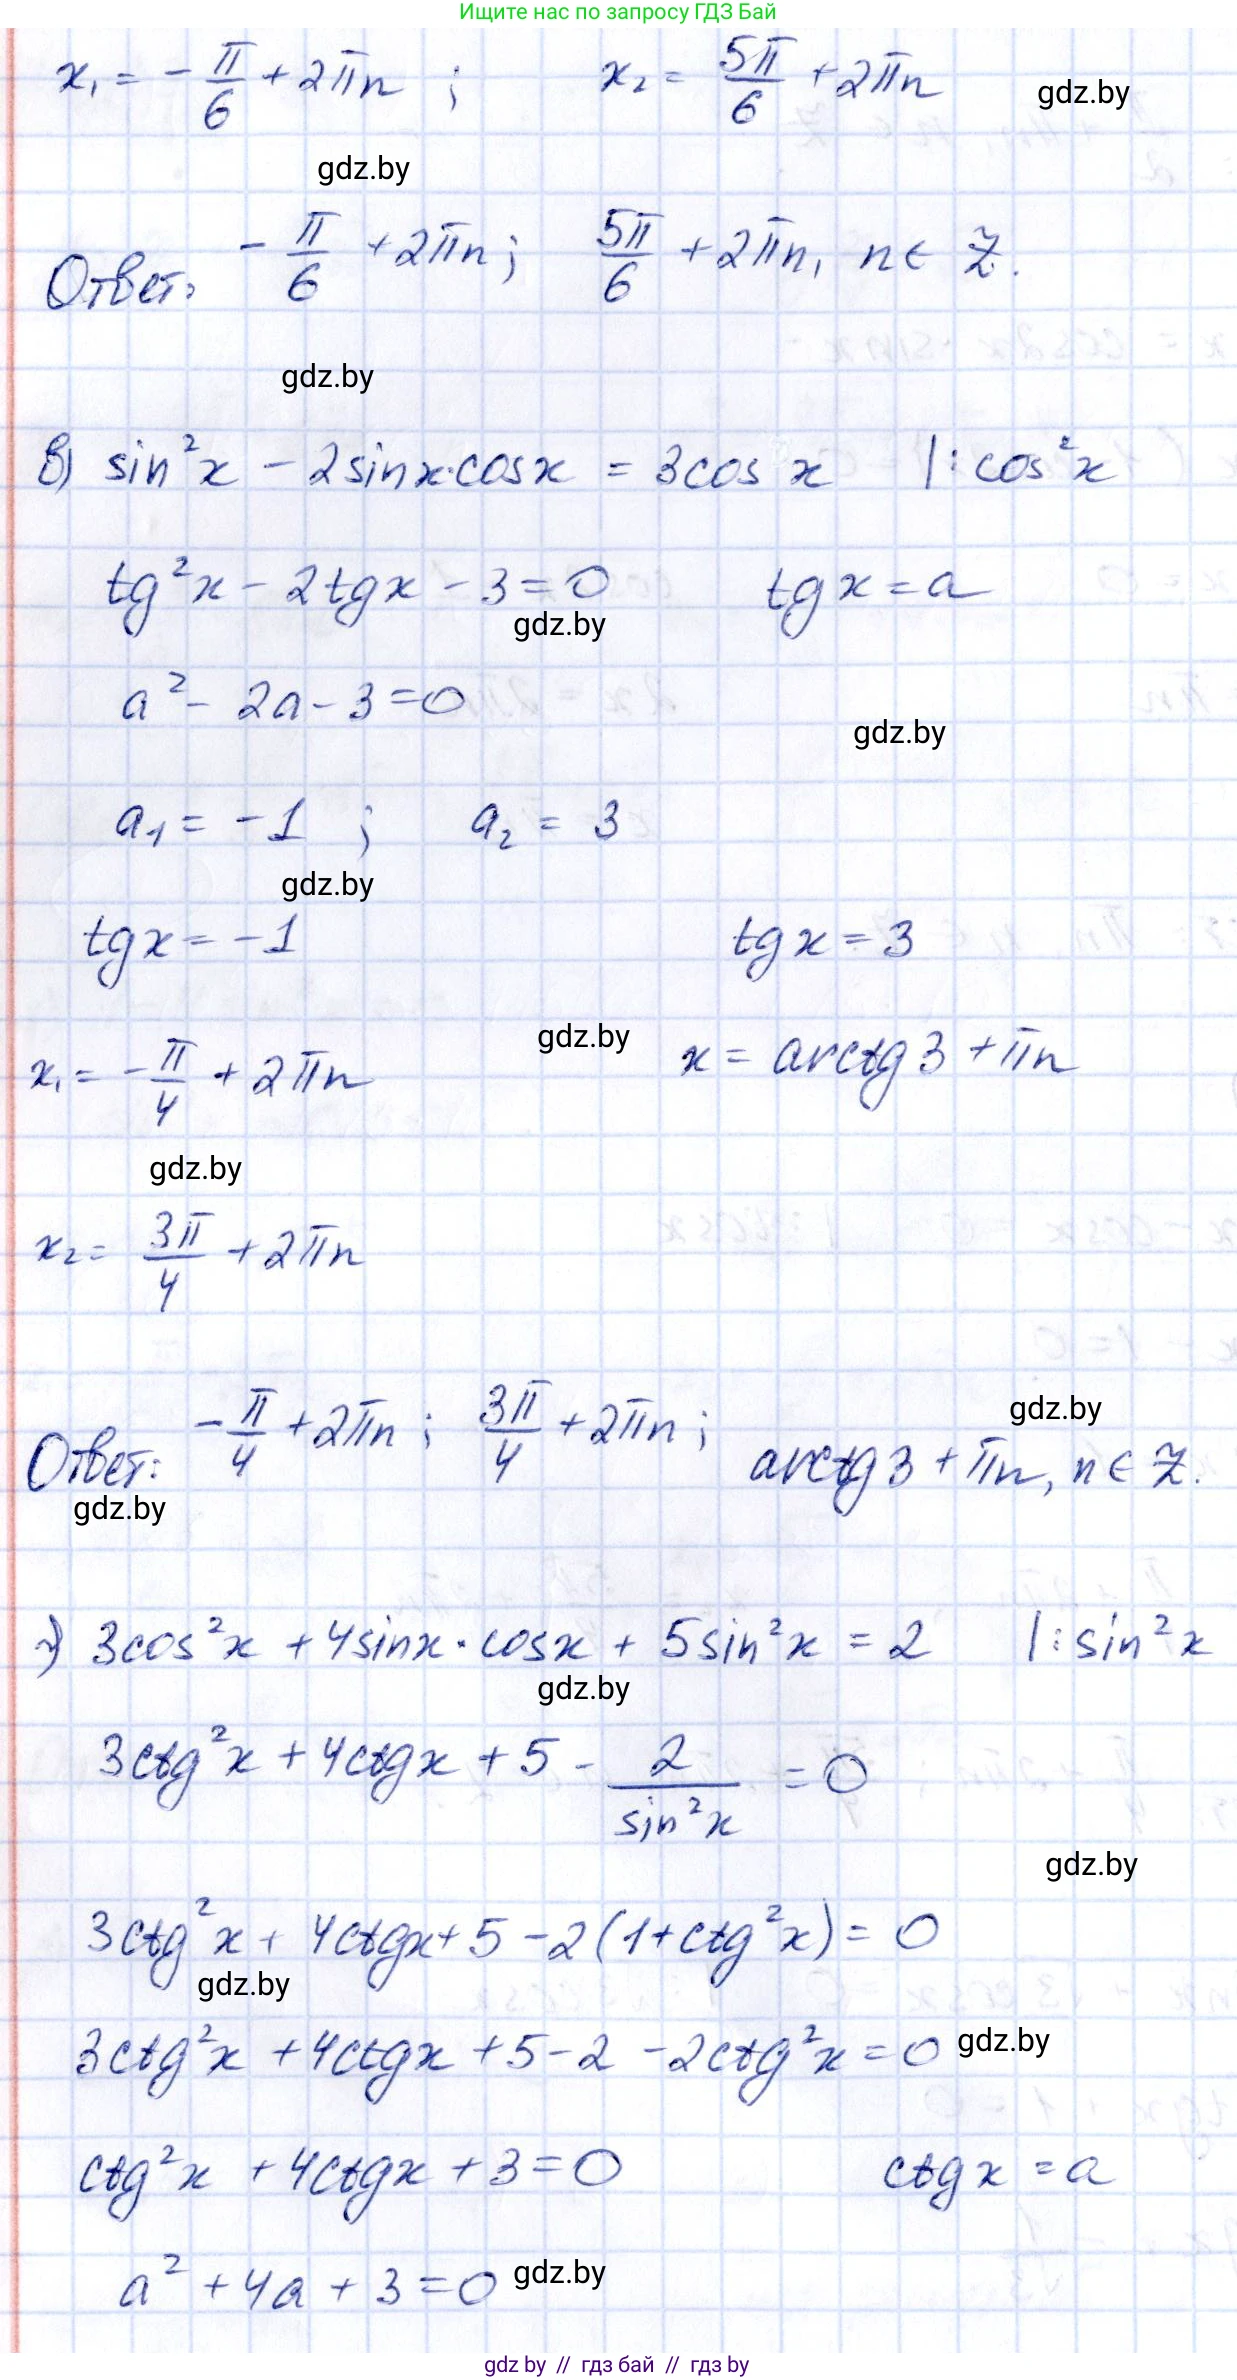 Ищите нас по запросу ГДЗ Бай
x₁ = -π/6 + 2πn ; x₂ = 5π/6 + 2πn
gdz.by
gdz.by
Ответ: -π/6 + 2πn; 5π/6 + 2πn, n ∈ Z.
gdz.by
в) sin²x - 2sinx·cosx = 3cos x |: cos²x
tg²x - 2tgx - 3 = 0 tgx = a
gdz.by
a² - 2a - 3 = 0
gdz.by
a₁ = -1 ; a₂ = 3
gdz.by
tgx = -1 tgx = 3
gdz.by
x₁ = -π/4 + 2πn x = arctg3 + πn
gdz.by
x₂ = 3π/4 + 2πn
gdz.by
Ответ: -π/4 + 2πn; 3π/4 + 2πn; arctg3 + πn, n ∈ Z.
gdz.by
г) 3cos²x + 4sinx·cosx + 5sin²x = 2 |: sin²x
gdz.by
3ctg²x + 4ctgx + 5 - 2/sin²x = 0
gdz.by
3ctg²x + 4ctgx + 5 - 2(1 + ctg²x) = 0
gdz.by
3ctg²x + 4ctgx + 5 - 2 - 2ctg²x = 0
gdz.by
ctg²x + 4ctgx + 3 = 0 ctgx = a
a² + 4a + 3 = 0
gdz.by
gdz by // гдз бай // гдз by